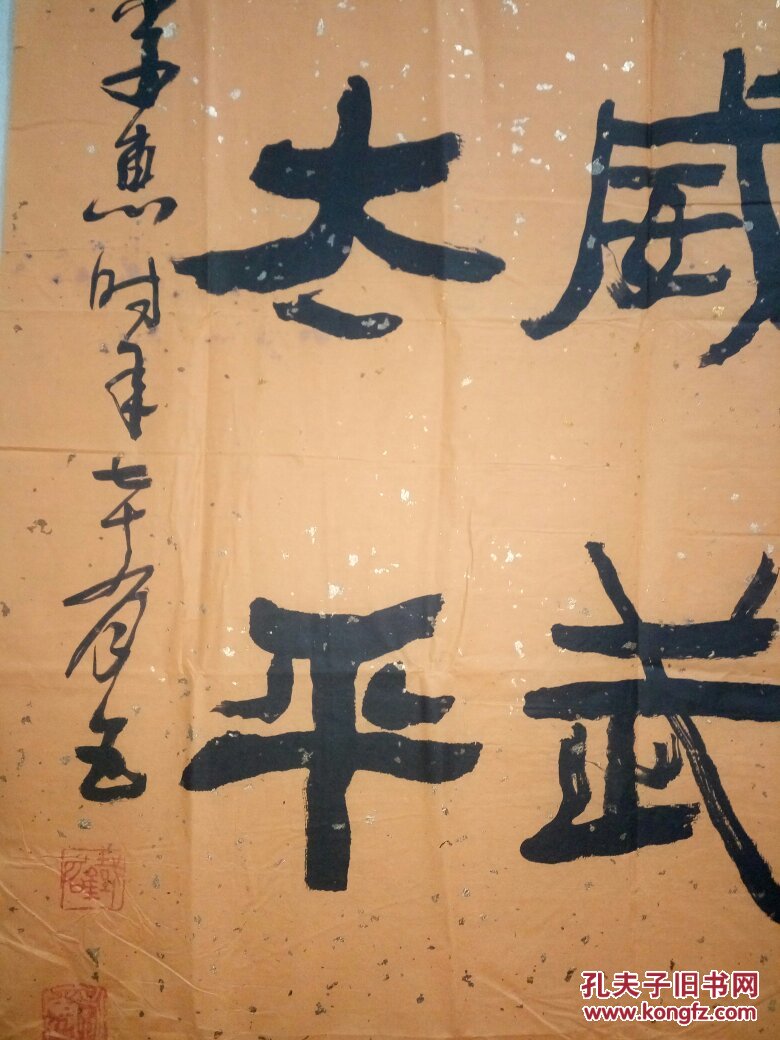 威武
太平
惠时年七十有五
孔夫子旧书网
www.kongfz.com